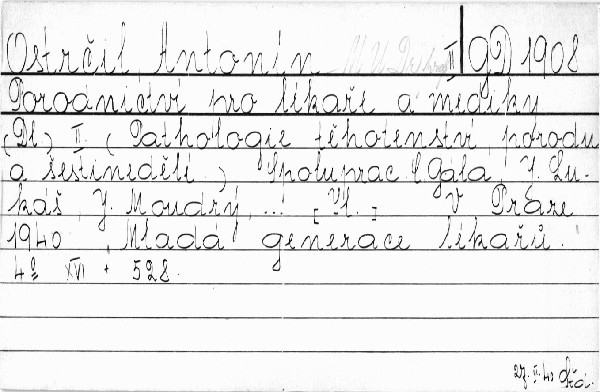 Ostrčil, Antonín II gD 1908
Porodnictví pro lékaře a mediky
(Díl) II. (Pathologie těhotenství, porodu
a šestinedělí.) Spoluprac. C. Gála, J. Lu-
káš, J. Moudrý, ... [Vl.] V Praze
1940. Mladá generace lékařů.
4° XVI + 528.
27. II. 40